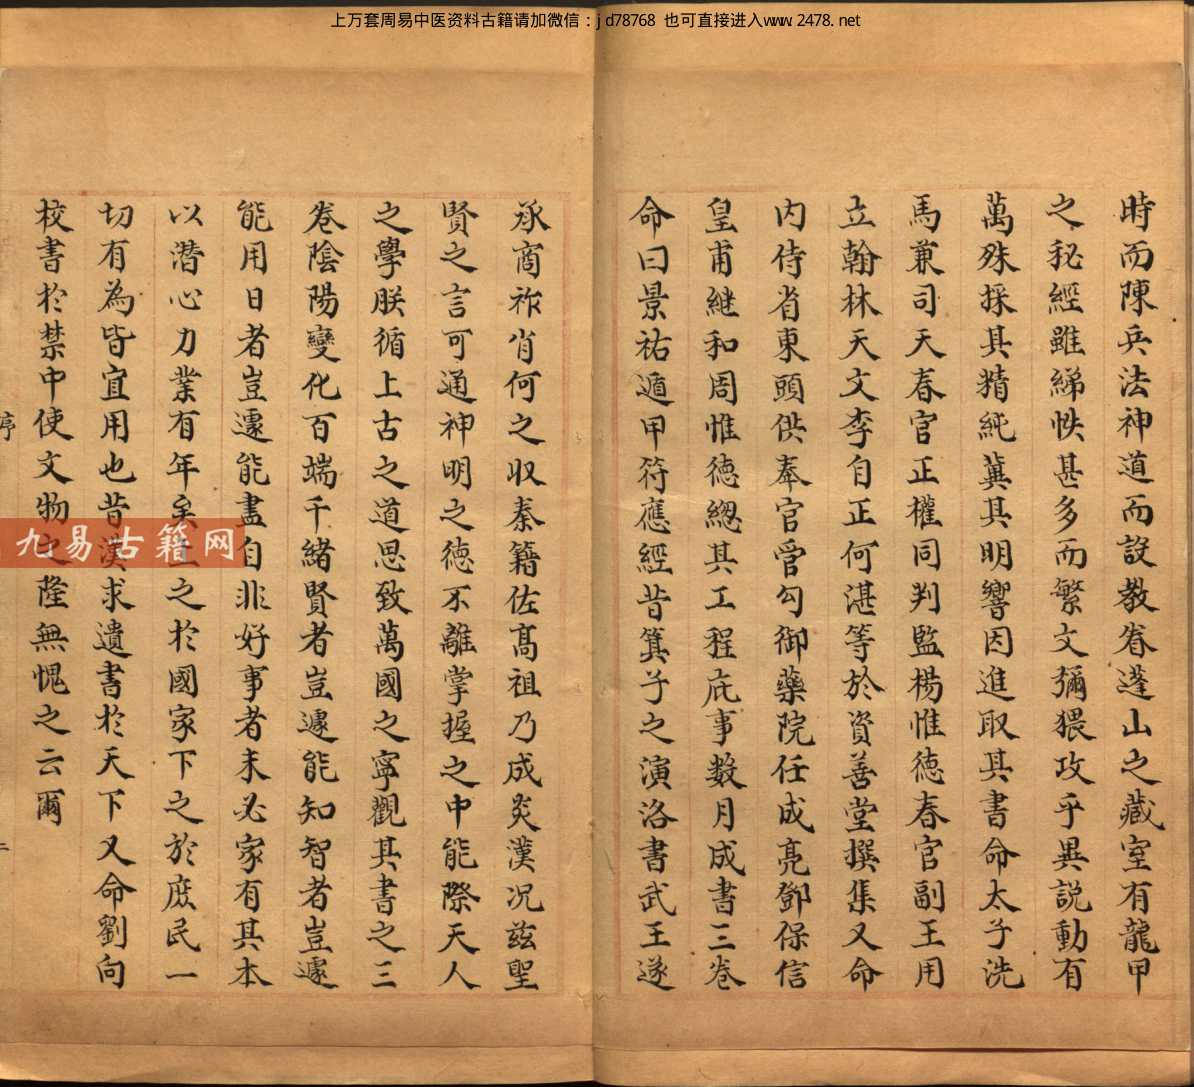 上万套周易中医资料古籍请加微信：jd78768 也可直接进入www.2478.net
時而陳兵法神道而設教眷蓬山之藏室有龍甲
之秘經雖綈帙甚多而繁文彌猥攻乎異説動有
萬殊採其精純冀其明響因進取其書命太子洗
馬兼司天春官正權同判監楊惟德春官副王用
立翰林天文李自正何湛等於資善堂撰集又命
内侍省東頭供奉官管勾御藥院任成亮鄧保信
皇甫継和周惟德緫其工程庀事数月成書三卷
命曰景祐遁甲符應經昔箕子之演洛書武王遂
承商祚肖何之収秦籍佐髙祖乃成炎漢况兹聖
賢之言可通神明之德不離掌握之中能際天人
之學朕循上古之道思致萬國之寧觀其書之三
卷陰陽變化百端千緒賢者豈遽能知智者豈遽
能用日者豈遽能盡自非好事者未必家有其本
以潜心力業有年矣上之於國家下之於庶民一
切有為皆宜用也昔漢求遺書於天下又命劉向
校書於禁中使文物之隆無愧之云爾
序
二
九易古籍网